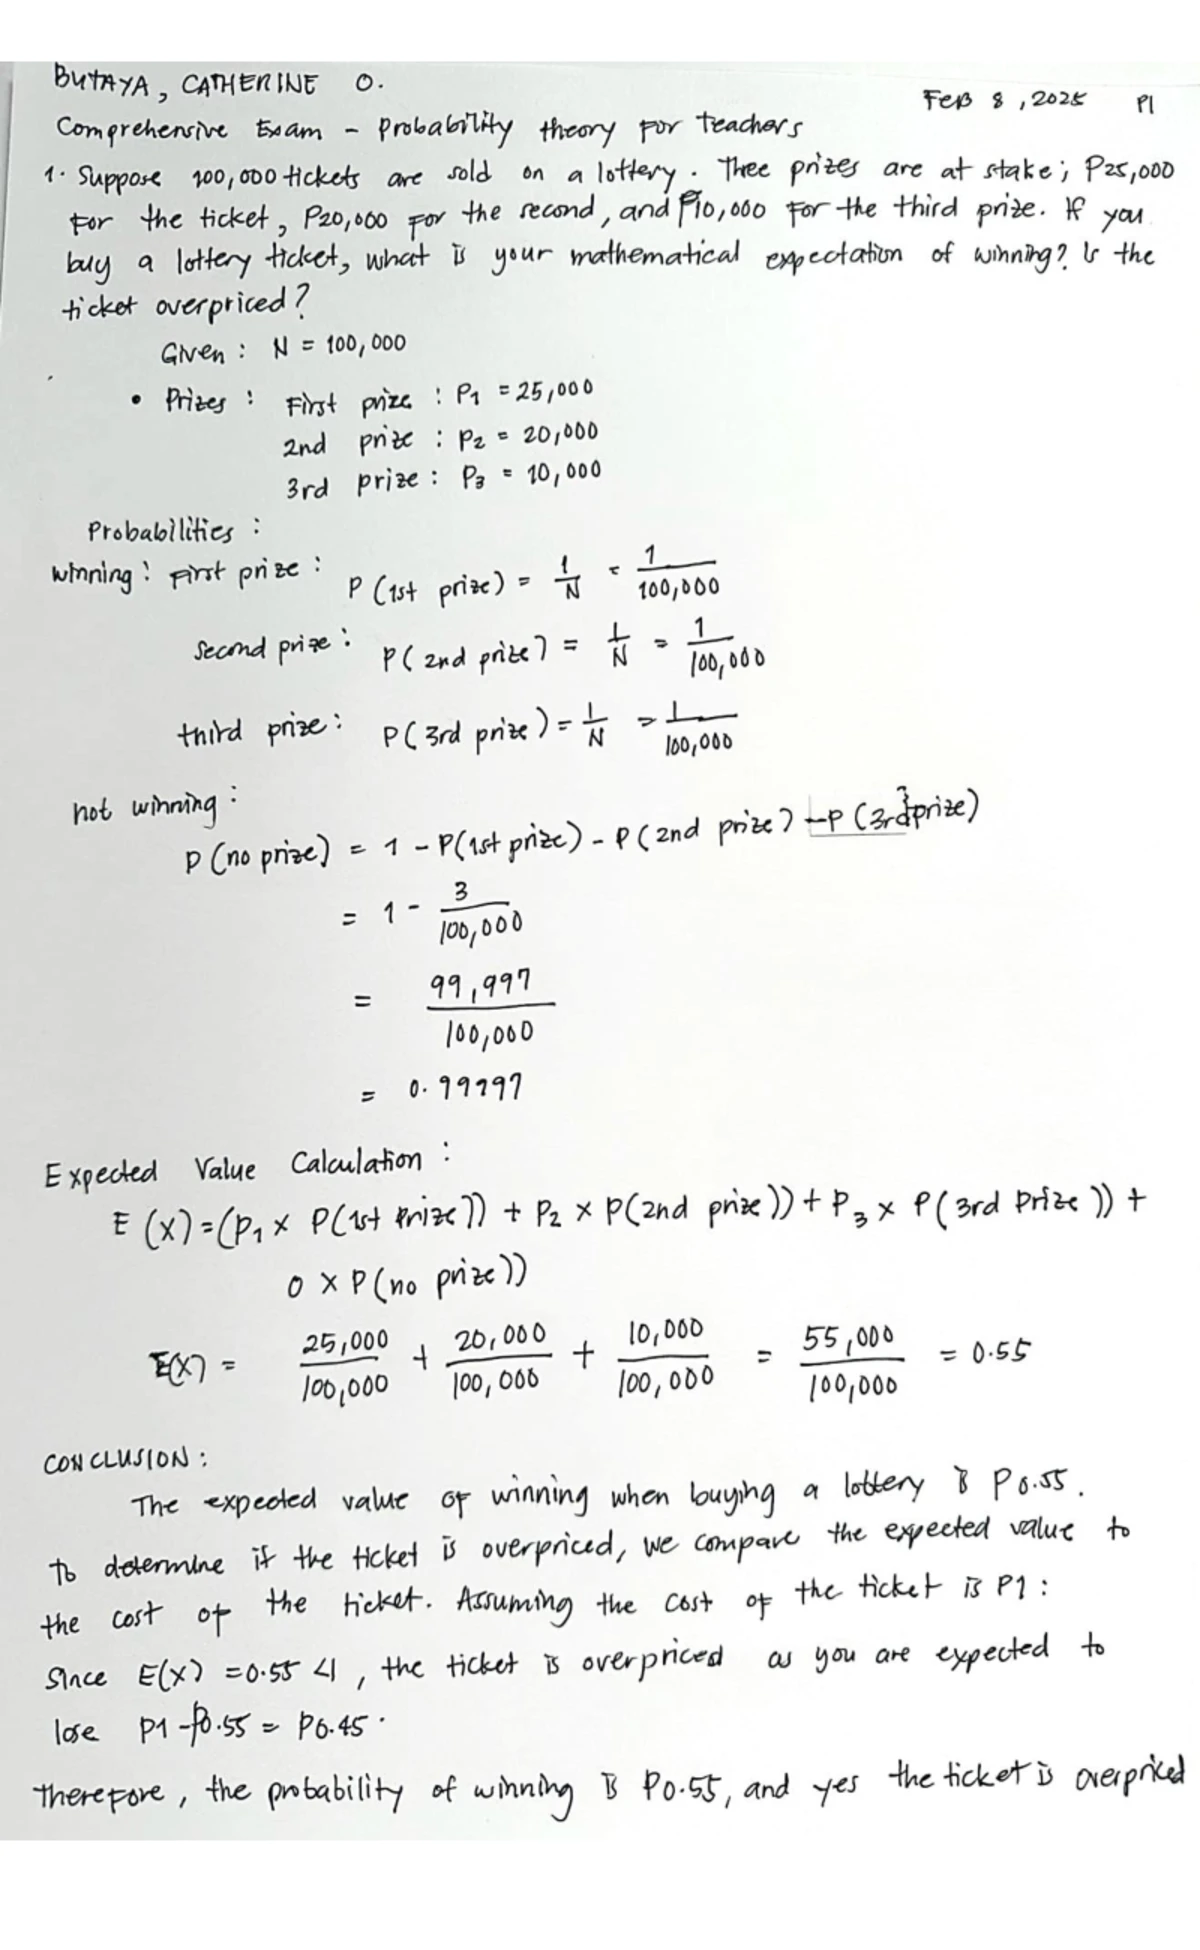 BUTAYA, CATHERINE O.
FEB 8, 2025 P1
Comprehensive Exam - Probability theory for teachers
1. Suppose 100,000 tickets are sold on a lottery. Three prizes are at stake; P25,000
for the ticket, P20,000 for the second, and P10,000 for the third prize. If you
buy a lottery ticket, what is your mathematical expectation of winning? Is the
ticket overpriced?
Given : N = 100,000
• Prizes : First prize : P1 = 25,000
2nd prize : P2 = 20,000
3rd prize : P3 = 10,000
Probabilities :
winning : First prize : P (1st prize) = 1/N = 1/100,000
Second prize : P( 2nd prize) = 1/N = 1/100,000
third prize : P( 3rd prize ) = 1/N = 1/100,000
not winning :
P (no prize) = 1 - P(1st prize) - P(2nd prize) - P (3rd prize)
= 1 - 3/100,000
= 99,997/100,000
= 0.99997
Expected Value Calculation :
E (X) = (P1 x P(1st Prize)) + P2 x P(2nd prize)) + P3 x P( 3rd Prize )) +
0 x P(no prize))
E(X) = 25,000/100,000 + 20,000/100,000 + 10,000/100,000 = 55,000/100,000 = 0.55
CONCLUSION :
The expected value of winning when buying a lottery is P0.55.
To determine if the ticket is overpriced, we compare the expected value to
the cost of the ticket. Assuming the cost of the ticket is P1 :
Since E(X) = 0.55 <1, the ticket is overpriced as you are expected to
lose P1 - P0.55 = P0.45.
Therefore, the probability of winning is P0.55, and yes the ticket is overpriced